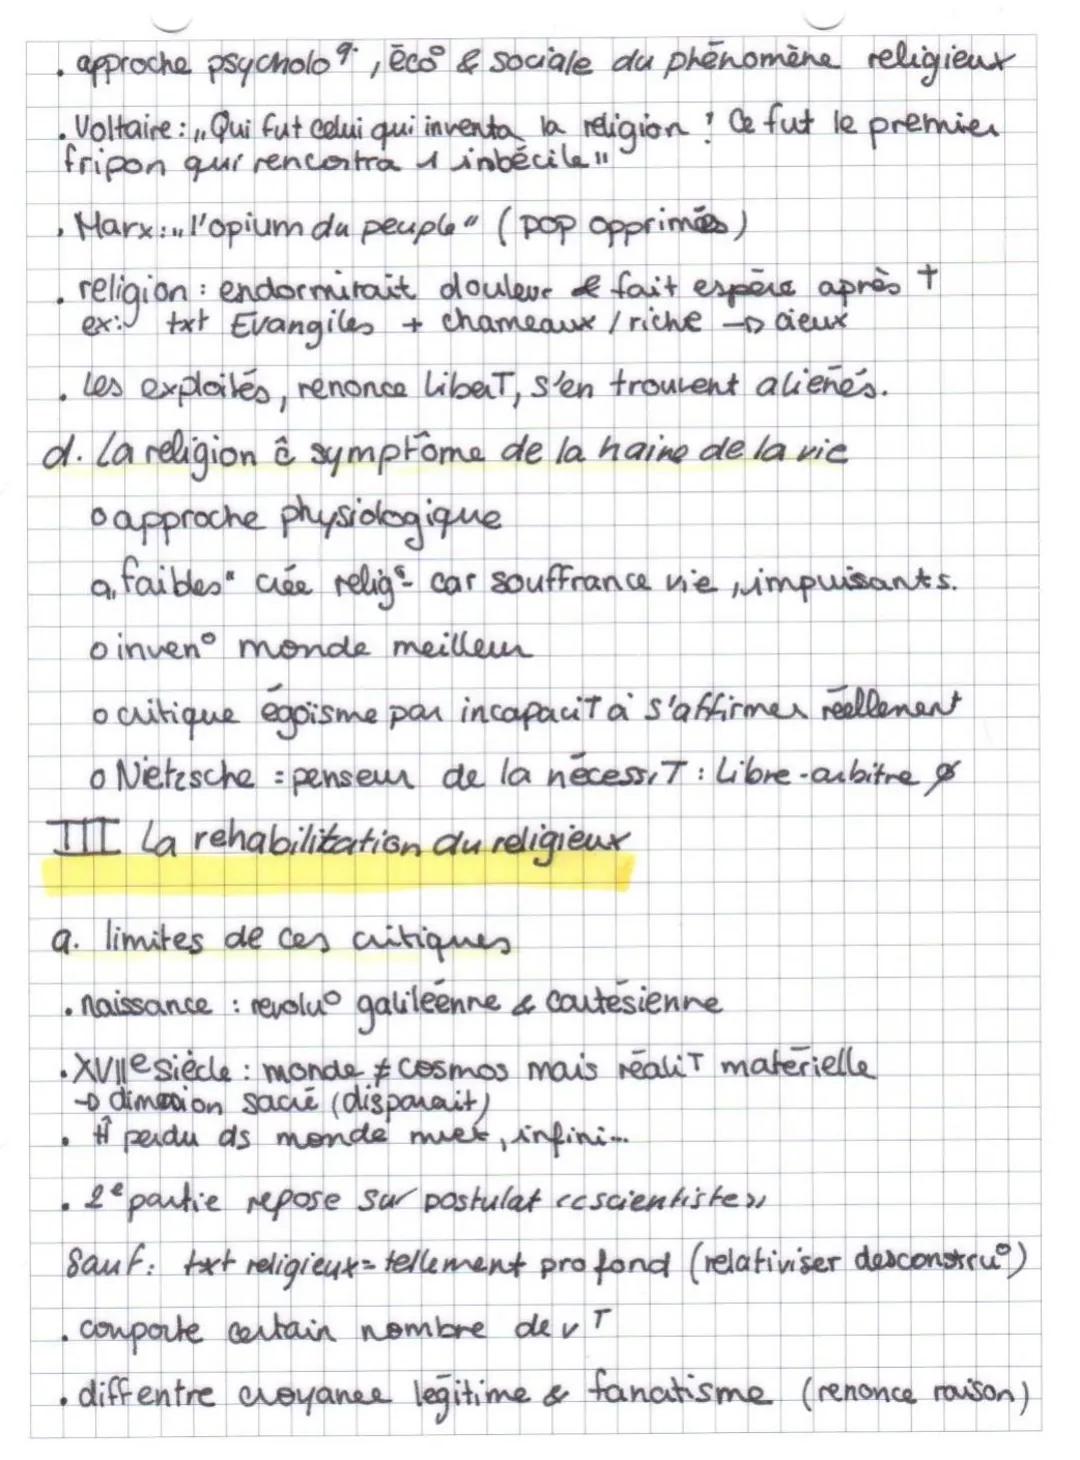 . approche psycholoq. , écoº & sociale du phénomène religieux
. Voltaire : „Qui fut celui qui inventa la religion ! Ce fut le premier
fripon qui rencontra 1 imbécile"
. Marx : „l'opium du peuple" ( pop opprimés )
. religion : endormirait douleur & fait espère après †
ex : txt Evangiles + chameaux / riche → cieux
. Les exploités, renonce liberT, s'en trouvent aliénés.
d. La religion ĉ symptôme de la haine de la vie
o approche physiologique
o „faibles" crée religº car souffrance vie , impuisants.
o invenº monde meilleur
o critique égoïsme par incapaciT à s'affirmer réellement
o Nietzsche = penseur de la nécessiT : Libre-arbitre ∅
III La rehabilitation du religieux
a. limites de ces critiques
. naissance : revoluº galiléenne & cartésienne
. XVIIe siècle : monde ≠ cosmos mais réaliT matérielle
→ dimension sacré (disparait)
. Ĥ perdu ds monde muet, infini...
. 2e partie repose sur postulat «scientiste»
Sauf : txt religieux = tellement profond (relativiser desconstruº)
. comporte certain nombre de vT
. diff entre croyance légitime & fanatisme (renonce raison)